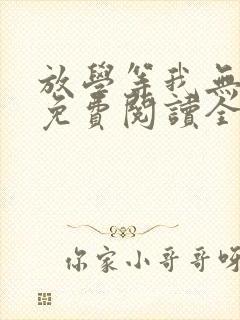 放學等我無
免費閱讀全
你家小哥哥呀